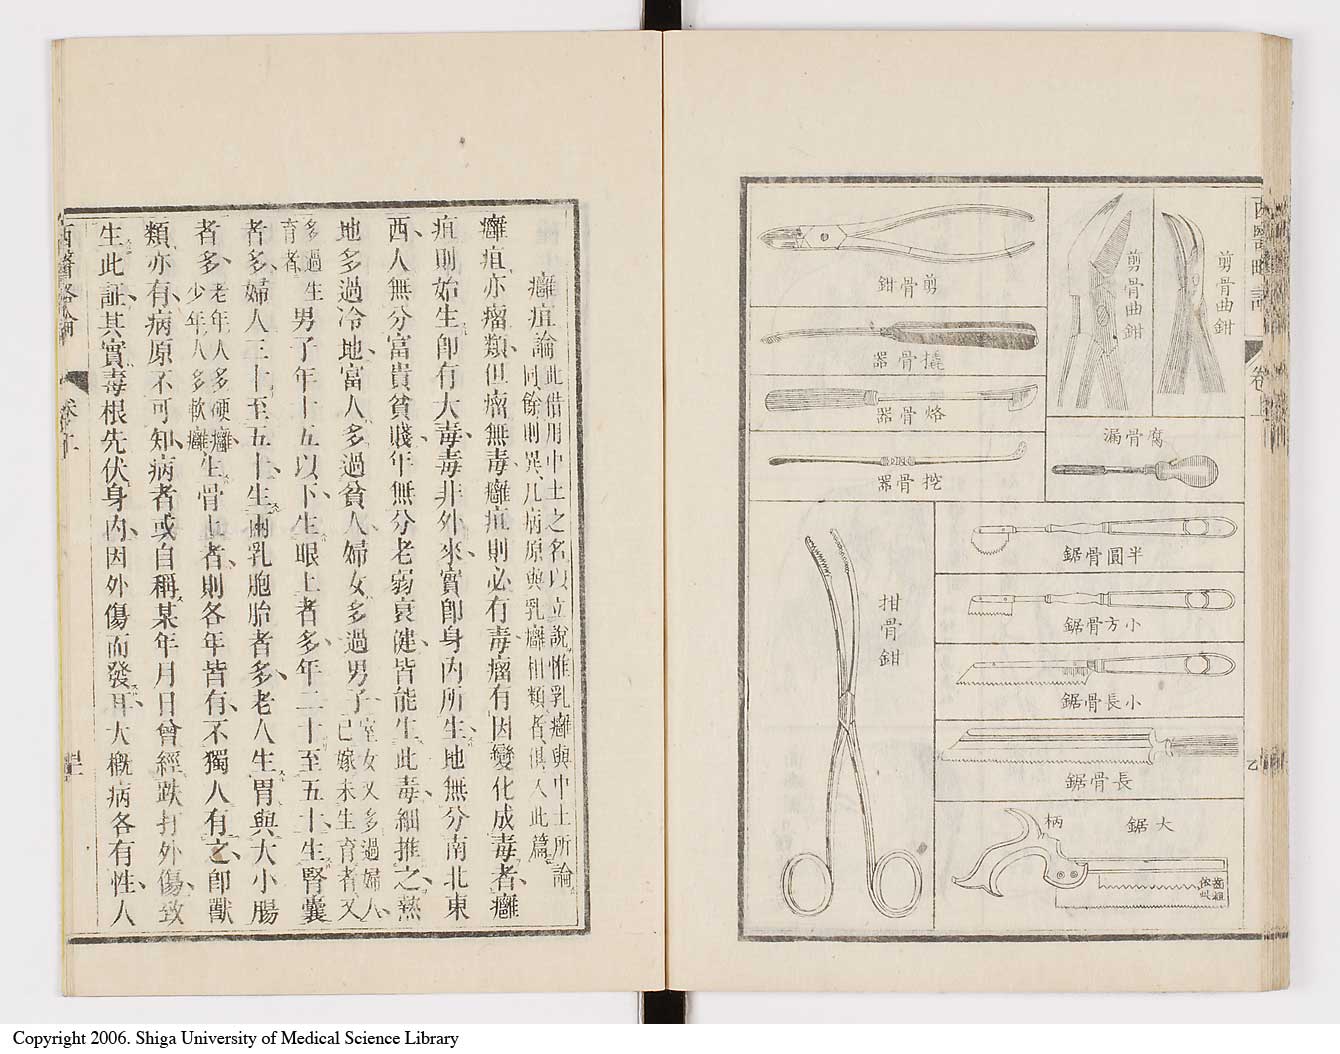 西醫略論
卷上
剪骨曲鉗
剪骨曲鉗
剪骨鉗
撬骨器
烙骨器
挖骨器
腐骨漏
半圓骨鋸
小方骨鋸
小長骨鋸
長骨鋸
大鋸
柄
拑骨鉗
癰疽論
此借用中土之名以立說惟乳癰與中土所論
同餘則異凡病原與乳癰相類者俱入此篇
癰疽亦瘤類但瘤無毒癰疽則必有毒瘤有因變化成毒者癰
疽則始生即有大毒毒非外來實即身內所生地無分南北東
西人無分富貴貧賤年無分老弱衰健皆能生此毒細推之熱
地多過冷地富人多過貧人婦女多過男子室女又多過婦人已嫁未生育者又
多過生育者男子年十五以下生眼上者多年二十至五十生腎囊
者多婦人三十至五十生兩乳胞胎者多老人生胃與大小腸
者多老年人多硬癰少年人多軟癰生骨上者則各年皆有不獨人有之即獸
類亦有病原不可知病者或自稱某年月日曾經跌打外傷致
生此証其實毒根先伏身內因外傷而發耳大概病各有性人
西醫略論
Copyright 2006. Shiga University of Medical Science Library